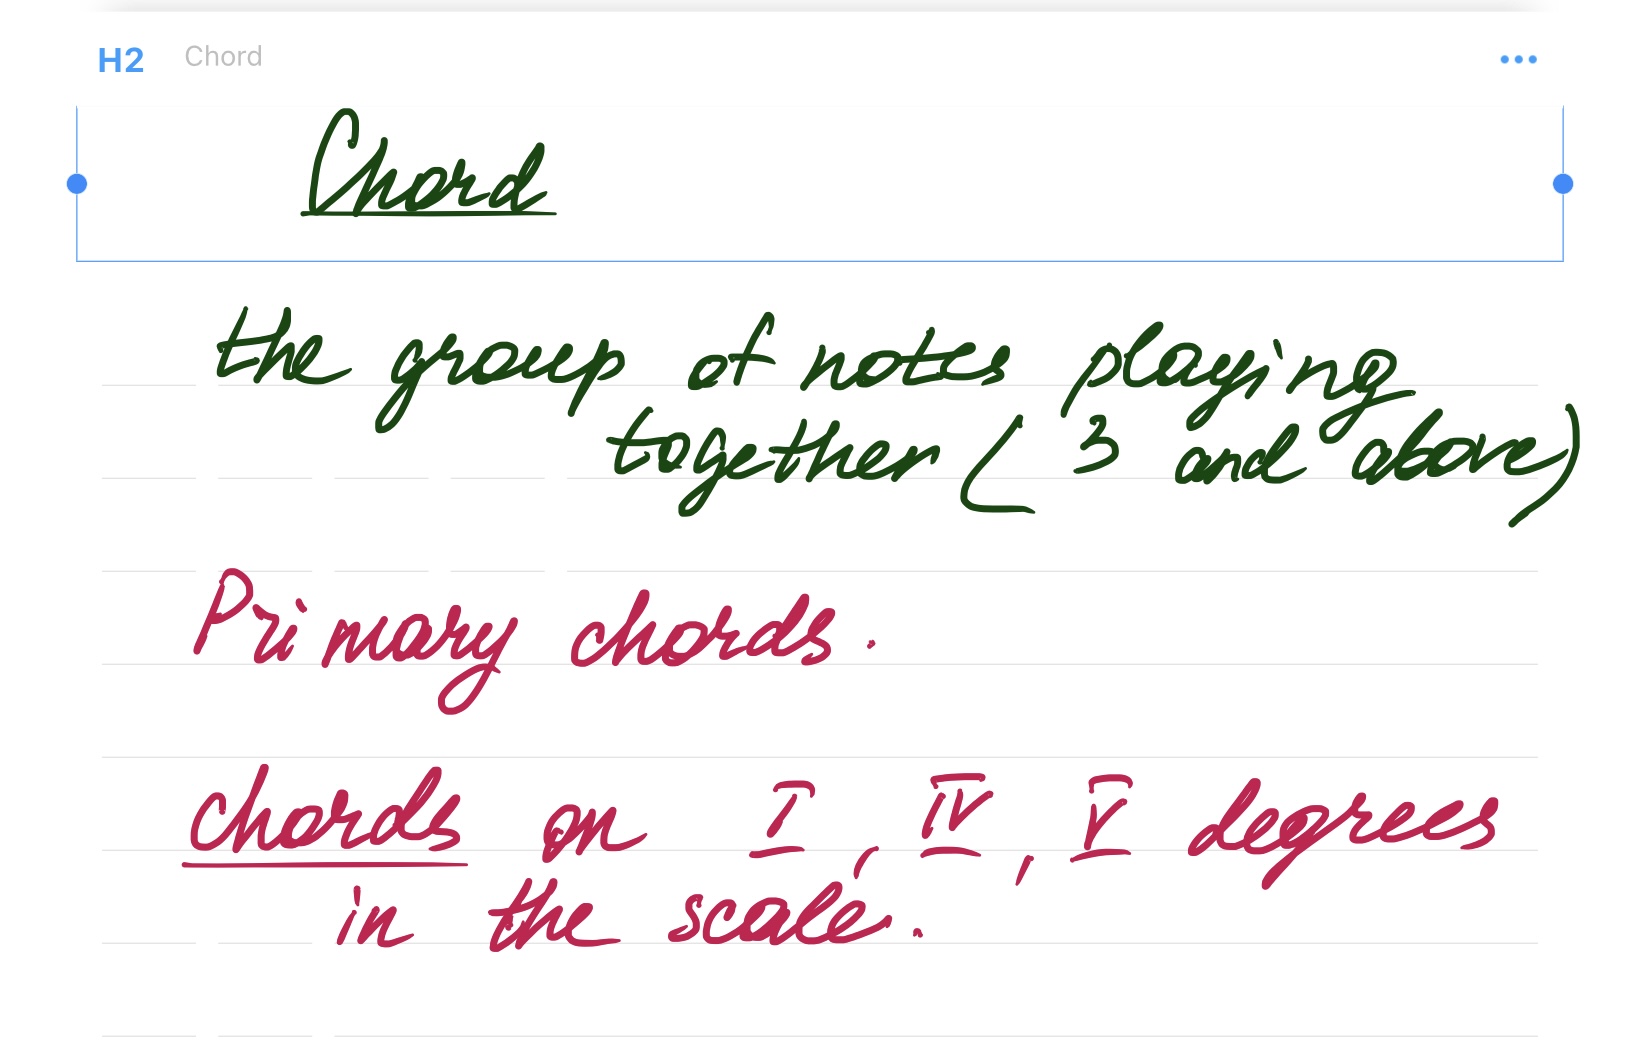 H2 Chord
Chord
the group of notes playing
together ( 3 and above)
Primary chords.
chords on I, IV, V degrees
in the scale.